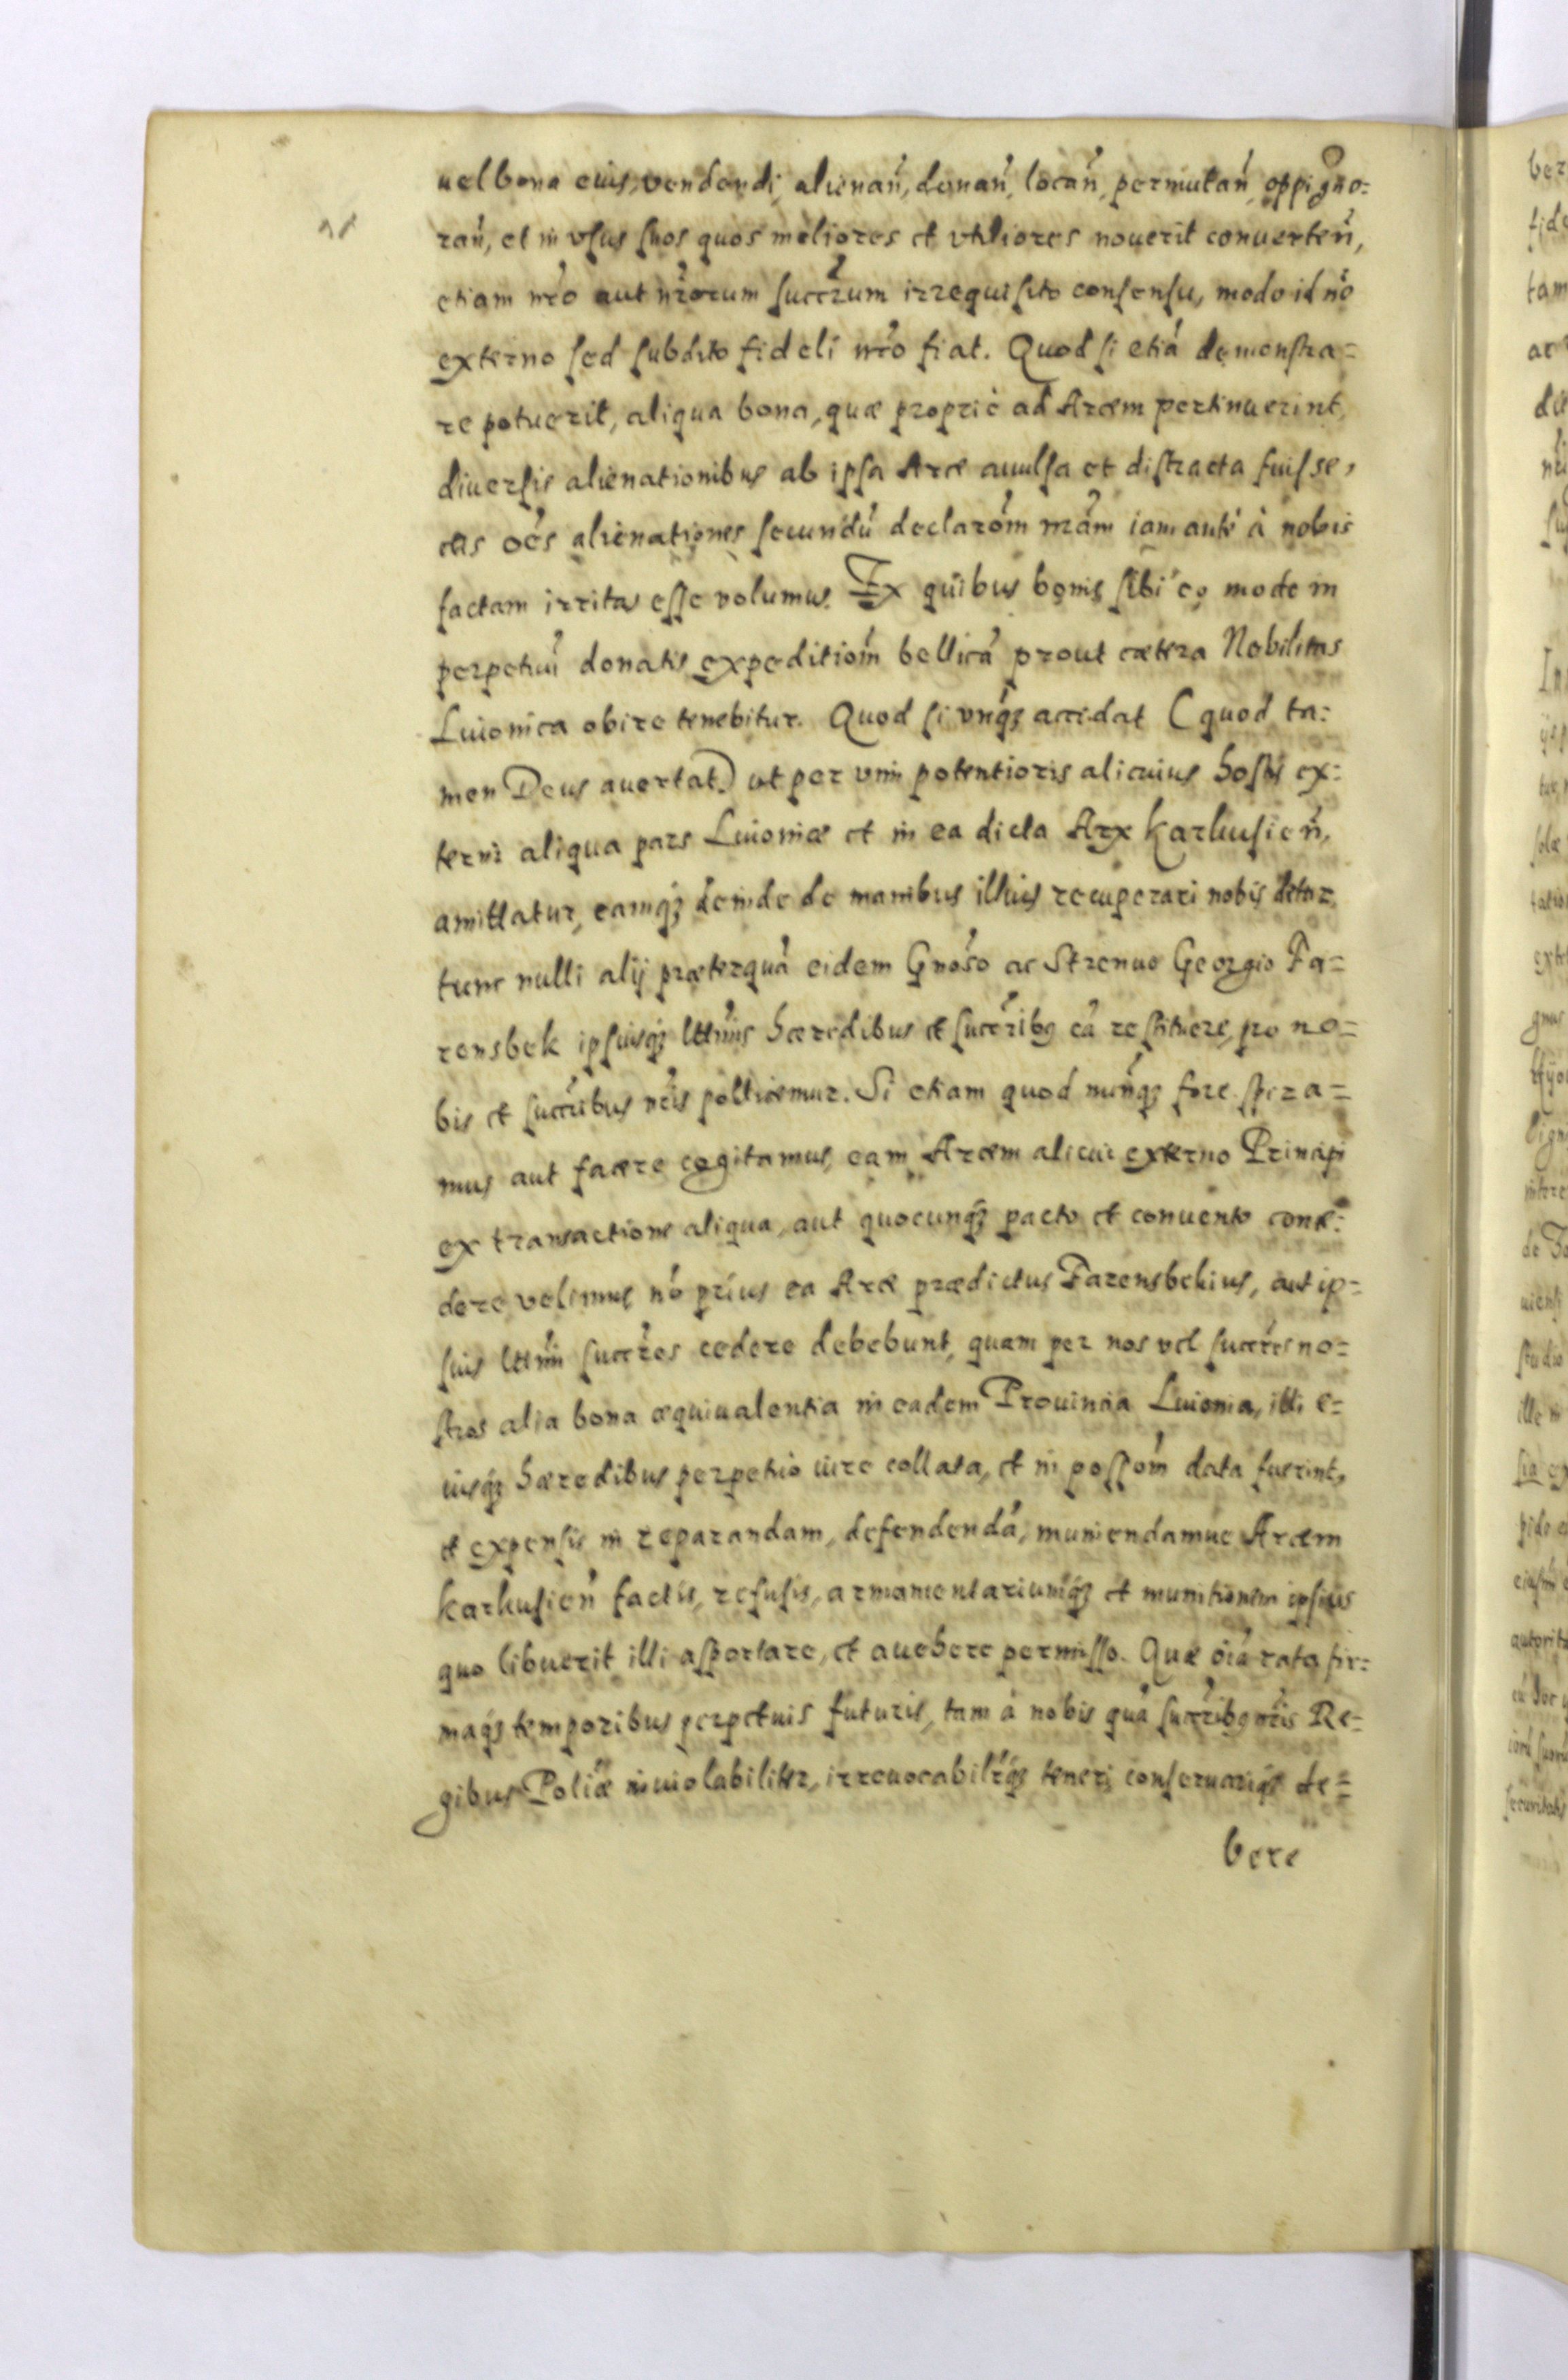 uel bona eius, vendendi, alienan̄, donan̄, locan̄, permutan̄, oppigno=
ran̄, et in vsus suos quos meliores et vtiliores nouerit conuerten̄,
etiam nr̄o aut nr̄orum succr̄um irrequisito consensu, modo id nō
externo sed subdito fideli nr̄o fiat. Quod si etiā demonstra=
re potuerit, aliqua bona, quæ propriè ad Arcem pertinuerint,
diuersis alienationibus ab ipsa Arce auulsa et distracta fuisse,
eas oēs alienationes secundū declarōm nr̄am iam antè à nobis
factam irritas esse volumus. Ex quibus bonis sibi eo modo in
perpetuū donatis expeditiōm bellicā prout cætera Nobilitas
Liuonica obire tenebitur. Quod si vnq̄ȝ accidat (quod ta=
men Deus auertat) ut per vim potentioris alicuius hostis ex=
terni aliqua pars Liuoniæ et in ea dicta Arx Karkusien̄,
amittatur, eamq́ȝ deinde de manibus illius recuperari nobis detur,
tunc nulli alij præterquā eidem Gnōso ac Strenuo Georgio Fa=
rensbek ipsiusq́ȝ lttīmis hæredibus et succr̄ibȝ eā restituere, pro no=
bis et succr̄ibus nr̄is pollicemur. Si etiam quod nunq̄ȝ fore spera=
mus aut facere cogitamus, eam Arcem alicui externo Principi
ex transactione aliqua, aut quocunq́ȝ pacto et conuento conce=
dere velimus nō prius ea Arce prædictus Farensbekius, aut ip=
sius lttīmi succr̄es cedere debebunt, quam per nos vel succr̄es no=
stros alia bona æquiualentia in eadem Prouincia Liuonia, illi e=
iusq́ȝ hæredibus perpetuò iure collata, et in possōm data fuerint,
et expensis in reparandam, defendendā, muniendamue Arcem
Karkusien̄ factis, refusis, armamentariumq́ȝ et munitionem ipsius
quo libuerit illi asportare, et auehere permisso. Quæ oīa rata fir=
maq́ȝ temporibus perpetuis futuris, tam à nobis quā succr̄ibȝ nr̄is Re=
gibus Polīæ inuiolabiliter, irreuocabilr̄q́ȝ teneri conseruariq́ȝ de=
bere